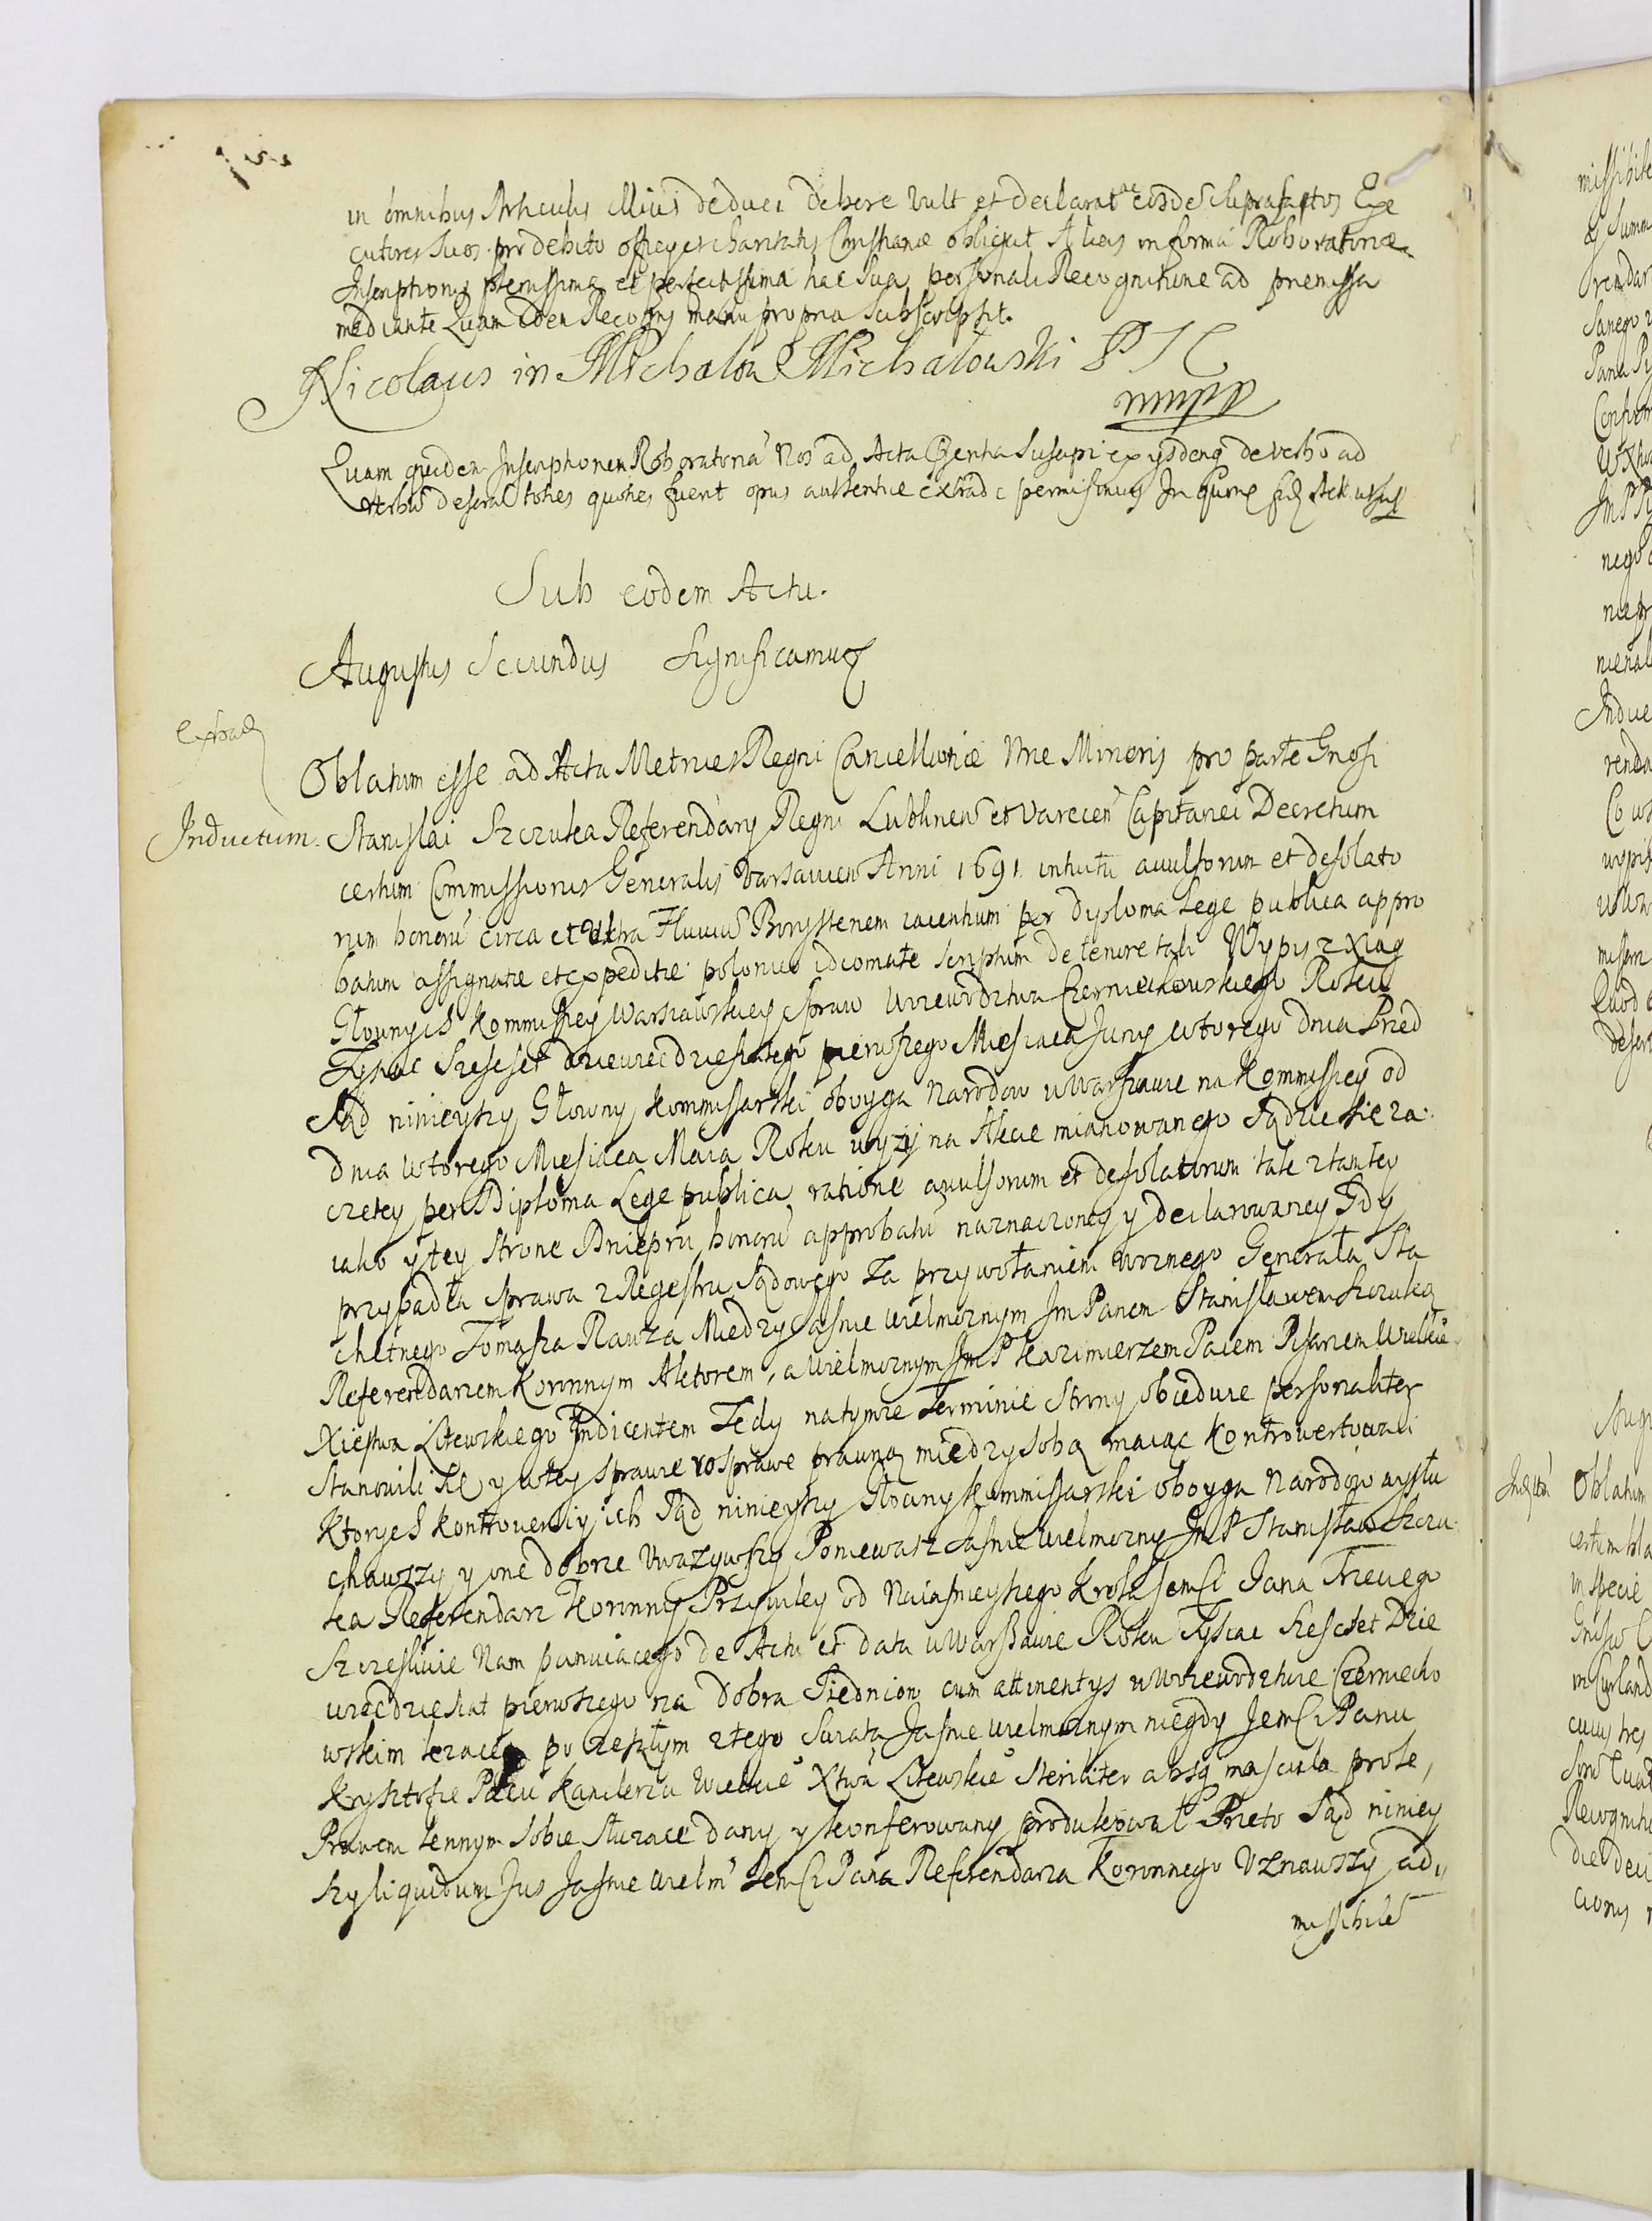 in omnibus Articulis illius deduci debere vult et declarat ac eosdē suprascriptos Exe
cutores suos pro debito officij et charitatis Christianæ obligat Alias in forma Roboratoriæ
Inscriptionis plenissima et perfectissima hac sua personali Recognitione ad premissa
mediante Quam idem Recogns manu propria subscripsit.
Nicolaus in Michalow Michalowski
mmpp
Quam quidem Inscriptionem Roboratoriā Nos ad Acta pñtia suscipi ex ijsdemq de verbo ad
verbū descral toties quoties fuerit opus authentice extradi permisimus In quorū fidē Act ut supra
Sub eodem Actu.
Augustus Secundus Significamus
Extrad
Oblatum esse ad Acta Metrices Regni Cancellariæ Nre Minoris pro parte Gnosi
Inductum. Stanislai Szczuka Referendarij Regni Lublineñ et Vareceñ Capitanei Decretum
certum Commissionis Generalis Varsavieñ Anni 1691 intuitu avulsorum et desolato
rum bonorū circa et ultra Fluviū Borysstenem iacentium per dyploma Lege publica appro
batum assignatæ et expeditæ polonico idiomate scriptum de tenore tali Wypis z Xiąg
Głownych Kommissyey Warszawskiey Spraw Woiewodztwa Czerniechowskiego Roku
Tysiąc Szescset dziewiecdziesiątego pierwszego Miesiaca Juny wtorego dnia Przed
Sąd ninieyszy Głowny Kommissarski oboyga Narodow w Warszawie na Kommissyey od
dnia wtorego Miesiaca Maia Roku wyzÿ na Akcie mianowanego sądzic sie za-
czetey per Diploma Lege publica ratione avulsorum et desolatorum tak z tamtey
iako y tey strone Dniepru bonorū approbatū naznaczoney y declarowaney Gdy
przypadła sprawa z Regestru Sądowego za przywołaniem woznego Generała Sla
chetnego Tomasza Rawza Miedzy Jasnie Wielmoznym Jm Panem Stanisławem Szczuką
Referendarzem Koronnym Aktorem, a Wielmoznym Jm P Kazimierzem Pacem Pisarzem Wielkiē
Xięstwa Litewskiego Indicentem Tedy natymze Terminie Strony obiedwie personaliter
Stanowili sie y wtey sprawie rosprawe prawną miedzy sobą maiąc kontrowertowali
Ktorych kontrowersiy ich Sąd ninieyszy Głowny Kommissarski oboyga Narodow wysłu
chawszy y one dobrze uwazywszy Poniewasz Jasnie Wielmozny Jm P Stanisław Szczu-
ka Referendarz Koronny Przywiley od Naiasnieyszego Krola JemCi Jana Trzeciego
Szczesliwie Nam panuiacego de Actu et data w Warszawie Roku Tysiac Szescset Dzie
wiecdziesiat pierwszego na dobra Siednion cum attinentys w Woiewodztwie Czerniecho
wskim lezace po zeszłym z tego Swiata Jasnie Wielmoznym niegdy JemCi Panu
Krysztofie Pacu Kanclerzu Wielkiē Xtwa Litewskiē steriliter absq mascula prole,
Prawem lennym sobie słuzące dany y konferowany produkował Przeto Sąd niniey
szy liquidum Jus Jasnie Wielmō JemCi Pana Referendarza Koronnego Uznawszy ad,,
missibile